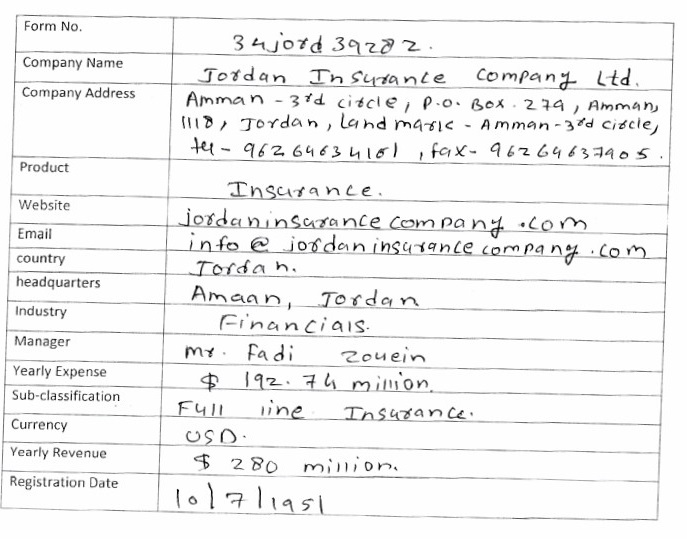 Form No. 34jord 39282.
Company Name Jordan Insurance Company Ltd.
Company Address Amman - 3rd circle, P.O. Box. 279, Amman,
1118, Jordan, Landmark - Amman - 3rd circle,
tel - 96264634161, fax - 96264637905.
Product Insurance.
Website jordaninsurancecompany.com
Email info@jordaninsurancecompany.com
country Jordan.
headquarters Amaan, Jordan
Industry Financials.
Manager Mr. Fadi Zouein
Yearly Expense $ 192.74 million.
Sub-classification Full line Insurance.
Currency USD.
Yearly Revenue $ 280 million.
Registration Date 10/7/1951